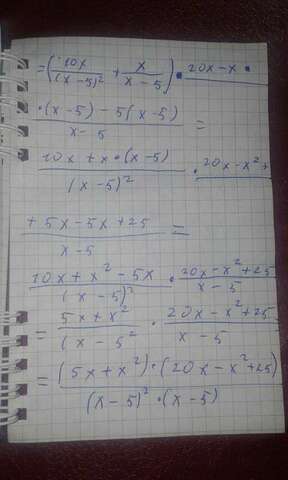 = (10x/(x-5)² + x/(x-5)) · 20x-x ·
· (x-5) - 5(x-5) / x-5 =
10x + x · (x-5) / (x-5)² · 20x-x²+
+ 5x - 5x + 25 / x-5 =
10x + x² - 5x / (x-5)² · 20x-x²+25 / x-5
= 5x+x² / (x-5² · 20x-x²+25 / x-5
= (5x+x²) · (20x-x²+25) / (x-5)² · (x-5)